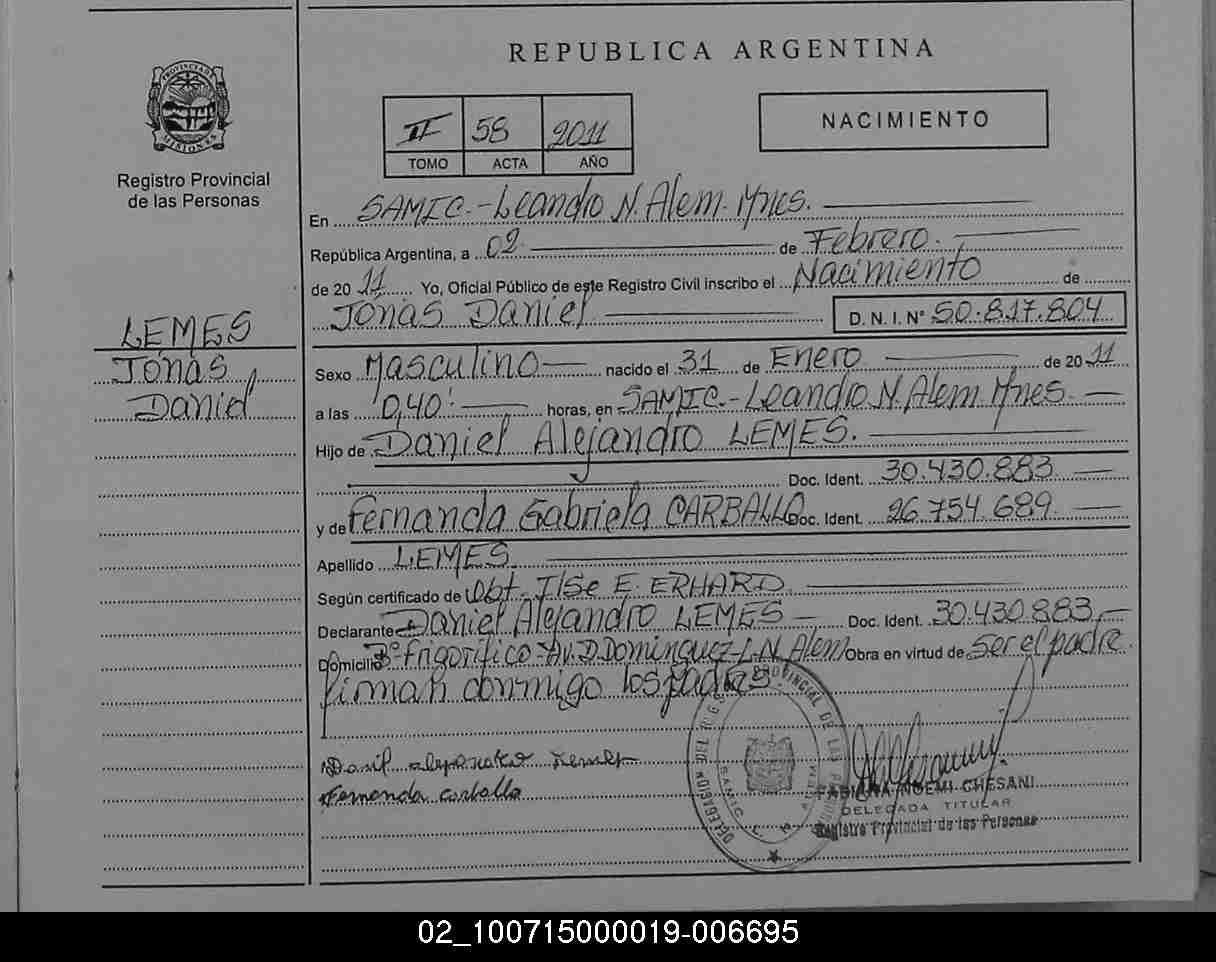 REPUBLICA ARGENTINA
PROVINCIA DE MISIONES
Registro Provincial
de las Personas
II 58 2011
TOMO ACTA AÑO
NACIMIENTO
En SAMIC.-Leandro N. Alem. Mnes.
República Argentina, a 02 de Febrero.
de 20 11 Yo, Oficial Público de este Registro Civil inscribo el Nacimiento de
Jonás Daniel D. N. I. N° 50.817.804
LEMES
Jonás
Daniel
Sexo Masculino nacido el 31 de Enero de 20 11
a las 0,40' horas, en SAMIC.-Leandro N. Alem. Mnes.
Hijo de Daniel Alejandro LEMES.
Doc. Ident. 30.430.883
y de Fernanda Gabriela CARBALLO Doc. Ident. 26.754.689
Apellido LEMES
Según certificado de Obt. Ilse E. ERHARD
Declarante Daniel Alejandro LEMES Doc. Ident. 30.430.883
Domicilio Bº Frigorífico-Av. D. Dominguez-L.N. Alem Obra en virtud de ser el padre.
firman conmigo los padres.
Fernanda carballo
DELEGACION DEL REGISTRO PROVINCIAL DE LAS PERSONAS
SAMIC L. N. ALEM
FABIANA NOEMI CHESANI
DELEGADA TITULAR
Registro Provincial de las Personas
02_100715000019-006695